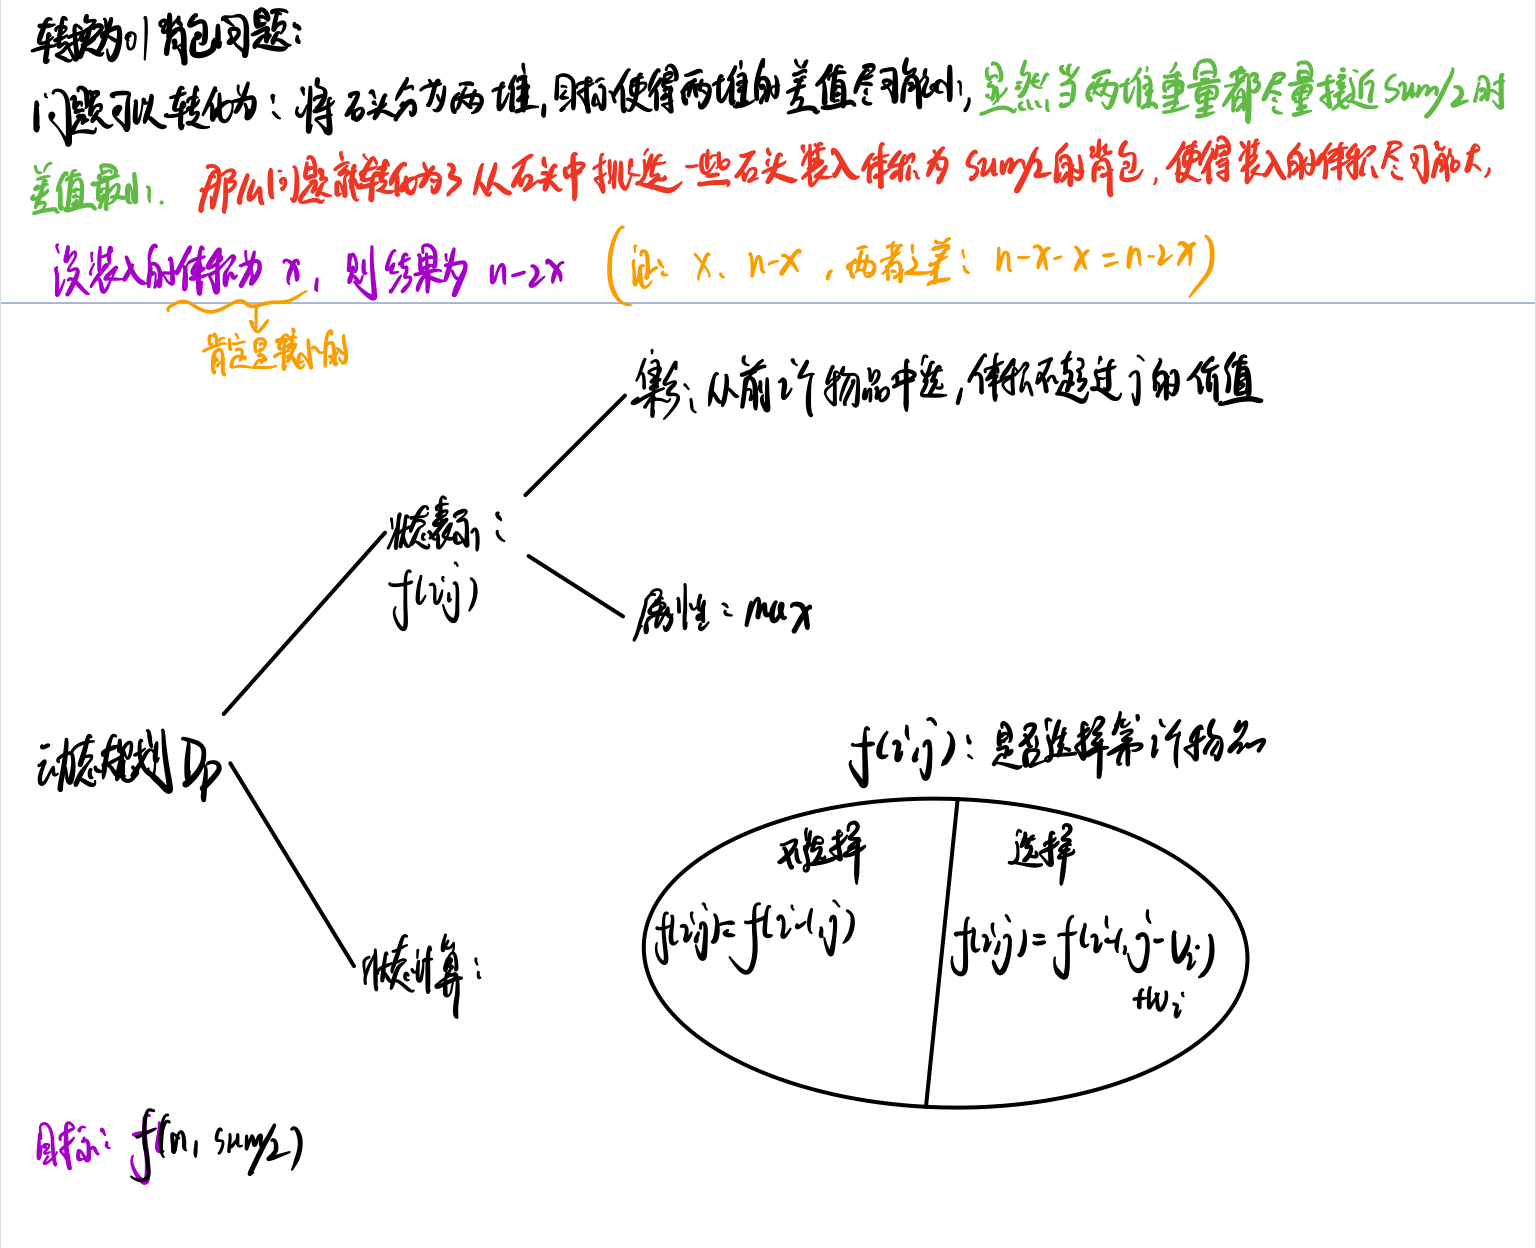 转换为01背包问题:
问题可以转化为:将石头分为两堆,目标使得两堆的差值尽可能小,显然当两堆重量都尽量接近sum/2时
差值最小. 那么问题就转化为了从石头中挑选一些石头装入体积为sum/2的背包,使得装入的体积尽可能大,
设装入的体积为x,则结果为n-2x (证: x、n-x,两者之差: n-x-x=n-2x)
肯定是较小的
集合:从前i个物品中选,体积不超过j的价值
状态表示:
f(i,j)
属性:max
f(i,j):是否选择第i个物品
动态规划Dp
不选择 选择
f(i,j)=f(i-1,j) f(i,j)=f(i-1,j-Vi)
+Wi
状态计算:
目标: f(n, sum/2)